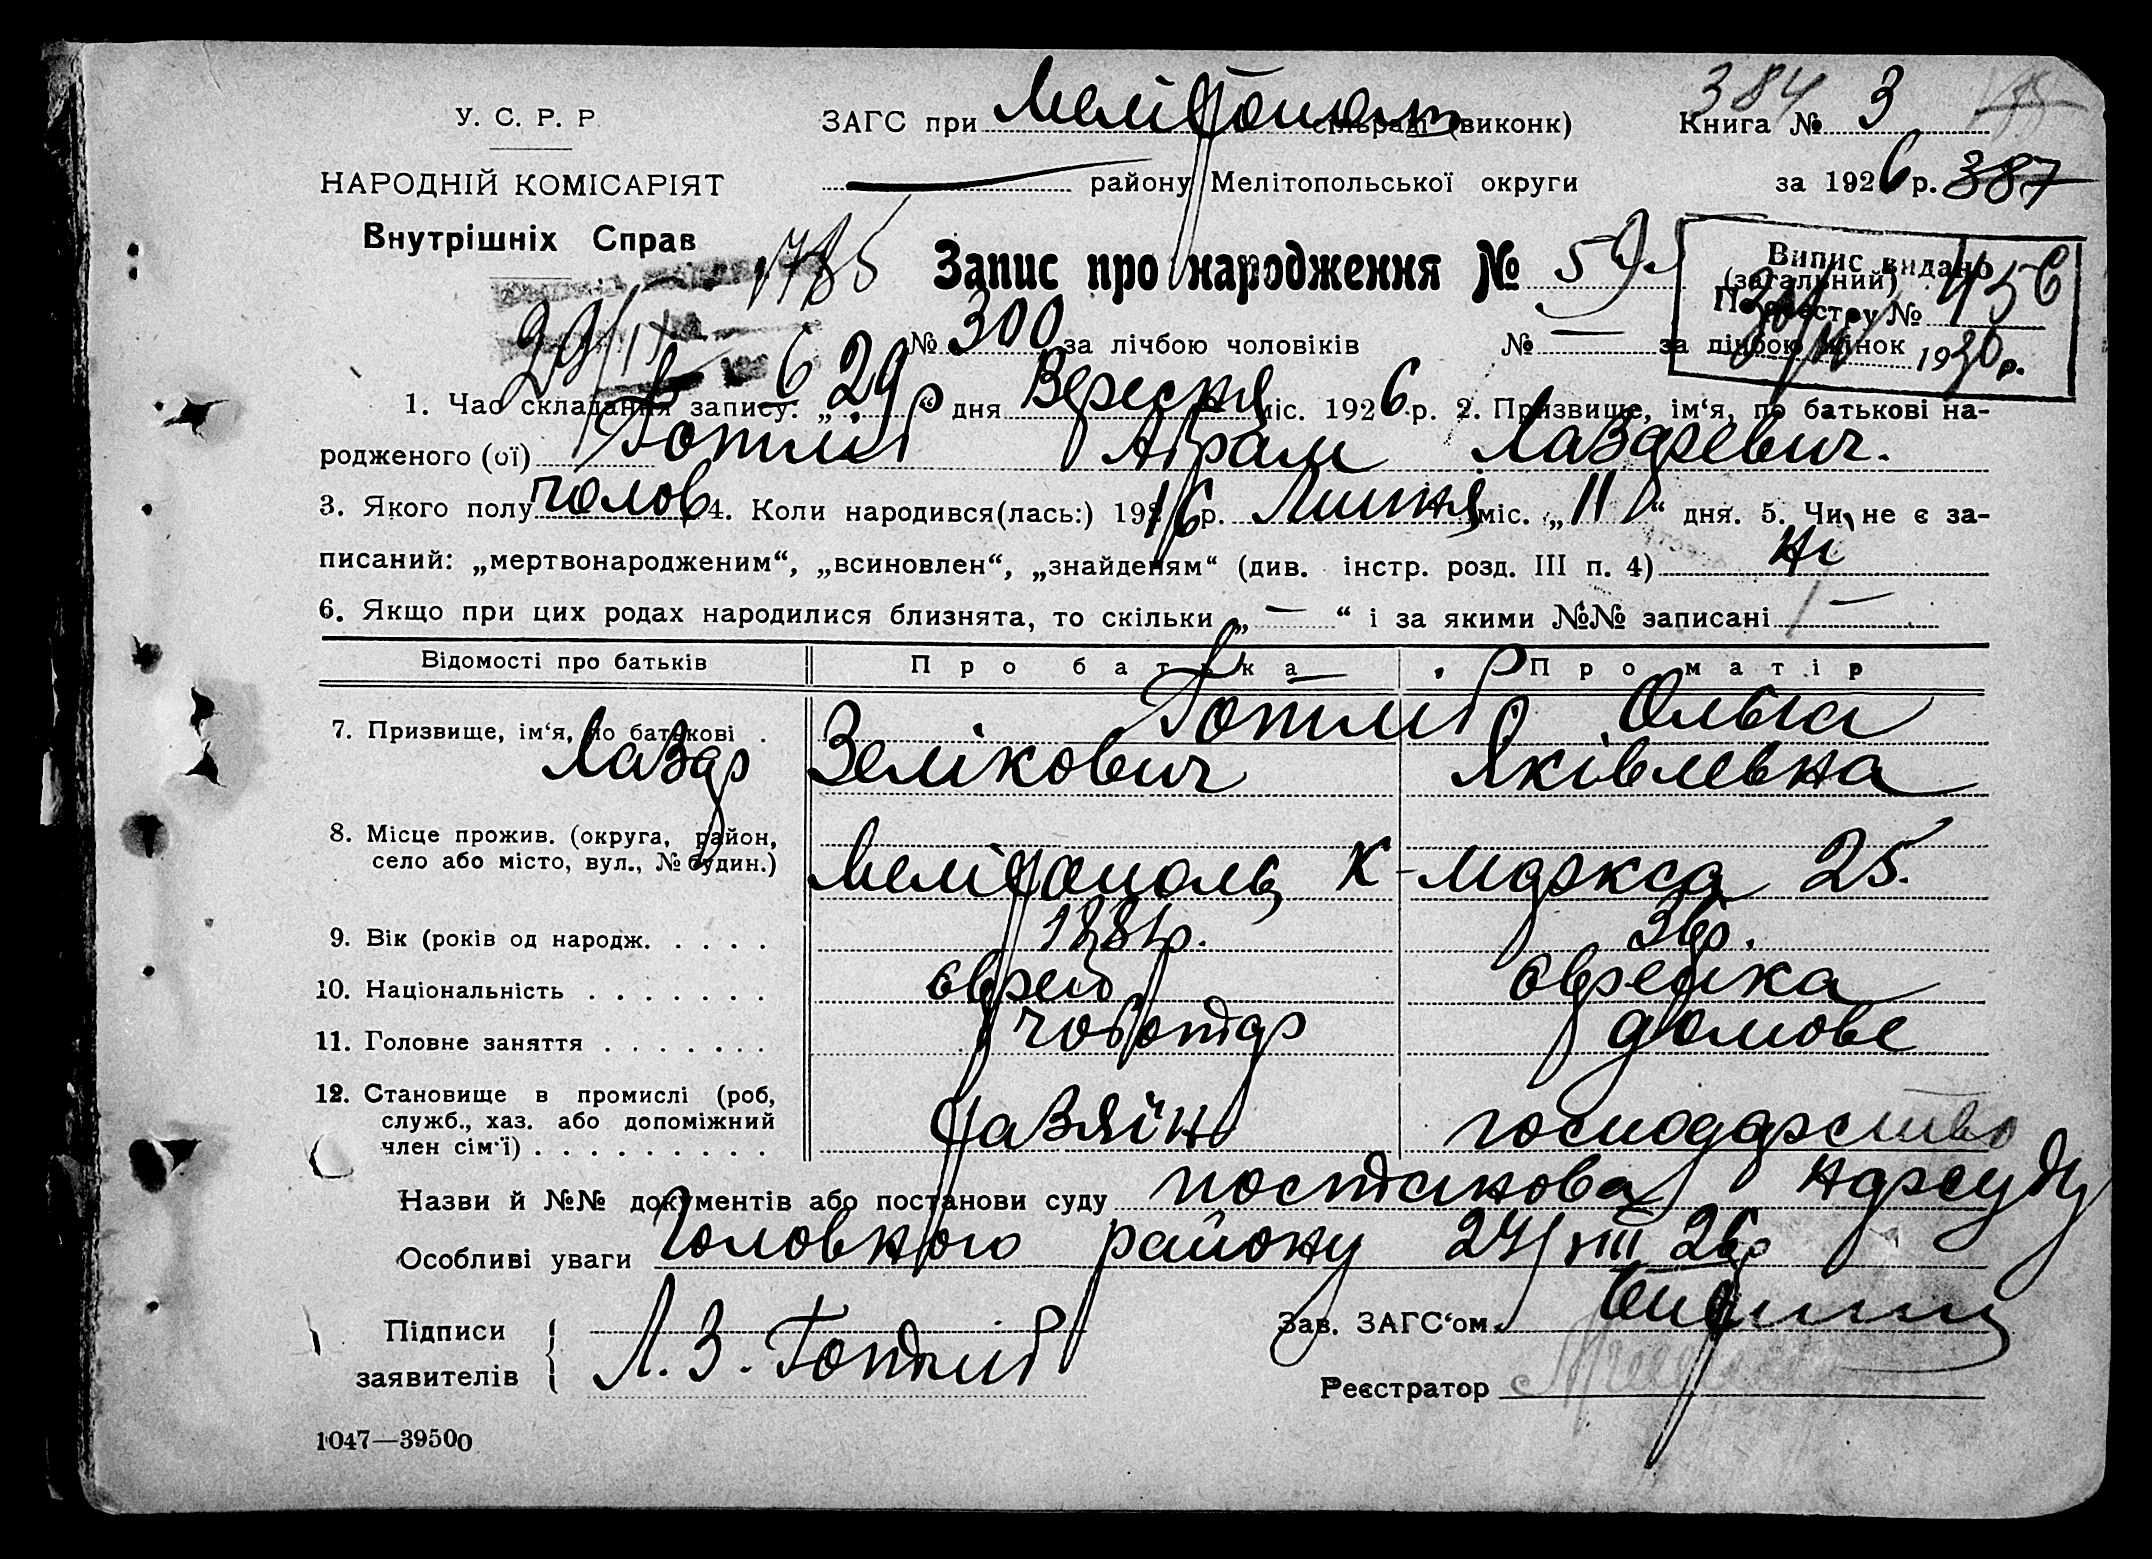 384
У. С. Р. Р.
ЗАГС при Мелітополь сільраді (виконк)
Книга № 3
НАРОДНІЙ КОМІСАРІЯТ
району Мелітопольської округи
за 1926 р. 387
Внутрішніх Справ
1785
Запис про народження № 59
(загальний)
Випис видано
По реєстру № 456
1930 р.
№ 300 за лічбою чоловіків № — за лічбою жінок
1. Час складання запису: „29“ дня Вересня міс. 1926 р. 2. Призвище, ім‘я, по батькові на-
родженого (ої) Готліб Абрам Лазаревич.
3. Якого полу чолов 4. Коли народився(лась:) 1916 р. Липня міс. „11“ дня. 5. Чи не є за-
писаний: „мертвонародженим“, „всиновлен“, „знайденям“ (див. інстр. розд. III п. 4) ні
6. Якщо при цих родах народилися близнята, то скільки „—“ і за якими №№ записані —
Відомості про батьків Про батька Про матір
7. Призвище, ім‘я, по батькові . Готліб Ольга
Лазар Зелікович Яківлевна
8. Місце прожив. (округа, район,
село або місто, вул., № будин.)
Мелітополь К-Маркса 25.
9. Вік (років од народж. . . . . 1881р. 36р.
10. Національність . . . . . . . єврей єврейка
11. Головне заняття . . . . . . . чоботар домове
12. Становище в промислі (роб,
служб., хаз. або допоміжний
член сім‘ї) . . . . . . . . . хазяїн господарство
Назви й №№ документів або постанови суду постанова нарсуду
Особливі уваги Головного району 24/VIII 26р
Підписи
заявителів
Л. З. Готліб
Зав. ЗАГС‘ом
Реєстратор
1047—39500